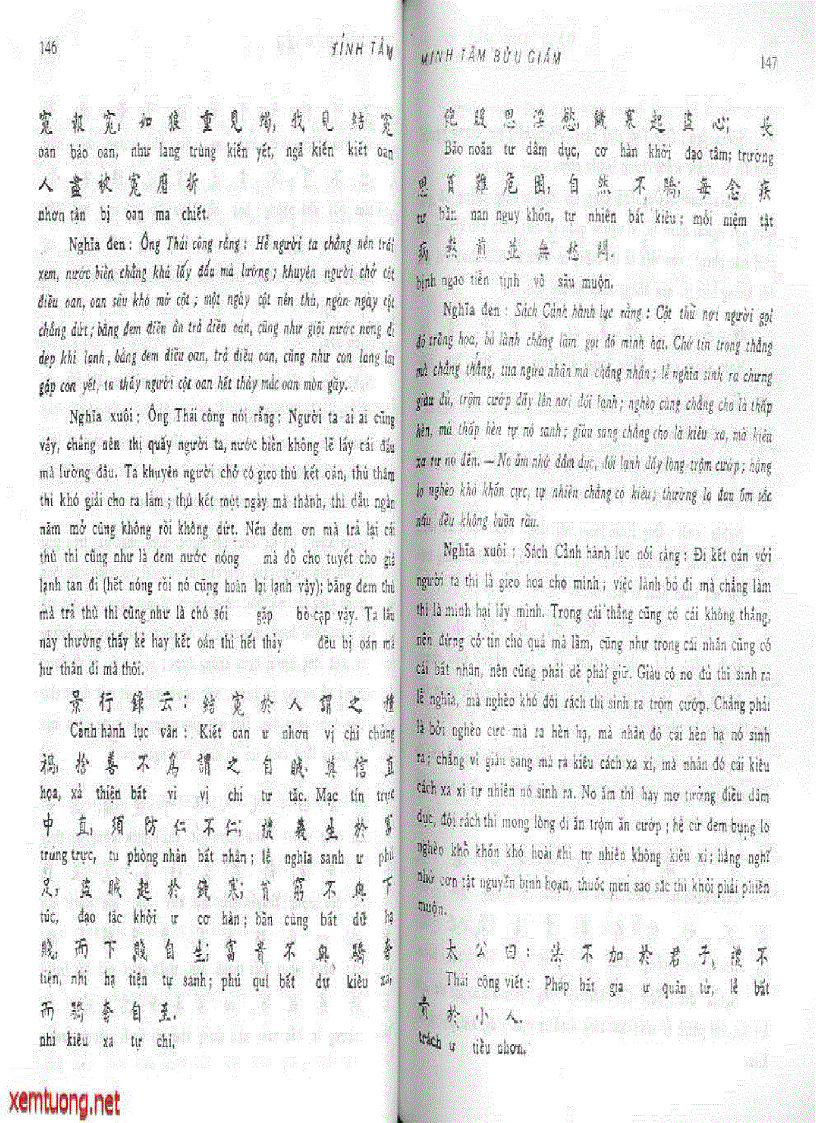 146 TỈNH TÂM
冤報冤, 如狼重見蝎, 我見結冤
oan báo oan, như lang trùng kiến yết, ngã kiến kiết oan
人盡被冤磨折
nhơn tận bị oan ma chiết.
Nghĩa đen : Ông Thái công rằng : Hễ người ta chẳng nên trái
xem, nước biển chẳng khá lấy đấu mà lường ; khuyên người chớ cột
điều oan, oan sâu khó mở cột ; một ngày cột nên thù, ngàn ngày cột
chẳng dứt ; bằng đem điều ân trả điều oán, cũng như giội nước nóng đi
dẹp khi lạnh, bằng đem điều oan, trả điều oan, cũng như con lang lại
gặp con yết, ta thấy người cột oan hết thảy mắc oan mòn gãy.
Nghĩa xuôi : Ông Thái công nói rằng : Người ta ai ai cũng
vậy, chẳng nên thị quấy người ta, nước biển không lẽ lấy cái đấu
mà lường đâu. Ta khuyên người chớ có gieo thù kết oán, thù thâm
thì khó giải cho ra lắm ; thù kết một ngày mà thành, thì dầu ngàn
năm mở cũng không rồi không dứt. Nếu đem ơn mà trả lại cái
thù thì cũng như là đem nước nóng mà đổ cho tuyết cho giá
lạnh tan đi (hết nóng rồi nó cũng hoàn lại lạnh vậy) ; bằng đem thù
mà trả thù thì cũng như là chó sói gặp bò-cạp vậy. Ta lâu
nay thường thấy kẻ hay kết oán thì hết thảy đều bị oán mà
hư thân đi mà thôi.
景行錄云 : 結冤於人謂之種
Cảnh hành lục vân : Kiết oan ư nhơn vị chi chủng
禍, 捨善不爲謂之自賊. 莫信直
họa, xả thiện bất vi vị chi tự tặc. Mạc tín trực
中直, 須防仁不仁; 禮義生於富
trung trực, tu phòng nhân bất nhân ; lễ nghĩa sanh ư phú
足, 盜賊起於饑寒; 貧窮不與下
túc, đạo tặc khởi ư cơ hàn ; bần cùng bất dữ hạ
賤, 而下賤自生; 富貴不與驕奢
tiện, nhi hạ tiện tự sanh ; phú quí bất dữ kiêu xa,
而驕奢自至.
nhi kiêu xa tự chí,
MINH TÂM BỬU GIÁM 147
飽煖思淫慾, 饑寒起盜心; 長
Bão noãn tư dâm dục, cơ hàn khởi đạo tâm ; trường
思貧難危困, 自然不驕; 每念疾
tư bần nan nguy khốn, tự nhiên bất kiêu ; mỗi niệm tật
病熬煎並無愁悶.
bịnh ngao tiên tịnh vô sầu muộn.
Nghĩa đen : Sách Cảnh hành lục rằng : Cột thù nơi người gọi
đó trồng họa, bỏ lành chẳng làm gọi đó mình hại. Chớ tin trong thẳng
mà chẳng thẳng, tua ngừa nhân mà chẳng nhân ; lễ nghĩa sinh ra chưng
giàu đủ, trộm cướp dấy lên nơi đói lạnh ; nghèo cùng chẳng cho là thấp
hèn, mà thấp hèn tự nó sanh ; giàu sang chẳng cho là kiêu xa, mà kiêu
xa tự nó đến. — No ấm nhớ dâm dục, đói lạnh dấy lòng trộm cướp ; hằng
lo nghèo khó khốn cực, tự nhiên chẳng có kiêu ; thường lo đau ốm sắc
nấu đều không buồn rầu.
Nghĩa xuôi : Sách Cảnh hành lục nói rằng : Đi kết oán với
người ta thì là gieo họa cho mình ; việc lành bỏ đi mà chẳng làm
thì là mình hại lấy mình. Trong cái thẳng cũng có cái không thẳng,
nên đừng có tin cho quá mà lầm, cũng như trong cái nhân cũng có
cái bất nhân, nên cũng phải dè phải giữ. Giàu có no đủ thì sinh ra
lễ nghĩa, mà nghèo khó đói rách thì sinh ra trộm cướp. Chẳng phải
là bởi nghèo cực mà ra hèn hạ, mà nhân đó cái hèn hạ nó sinh
ra ; chẳng vì giàu sang mà ra kiêu cách xa xỉ, mà nhân đó cái kiêu
cách xa xỉ tự nhiên nó sinh ra. No ấm thì hay mơ tưởng điều dâm
dục, đói rách thì mong lòng đi ăn trộm ăn cướp ; hễ cứ đem bụng lo
nghèo khổ khốn khó hoài thì tự nhiên không kiêu xỉ ; hằng nghĩ
như cơn tật nguyền bịnh hoạn, thuốc men sao sắc thì khỏi phải phiền
muộn.
太公曰 : 法不加於君子, 禮不
Thái công viết : Pháp bất gia ư quân tử, lễ bất
責於小人.
trách ư tiểu nhơn.
xemtuong.net